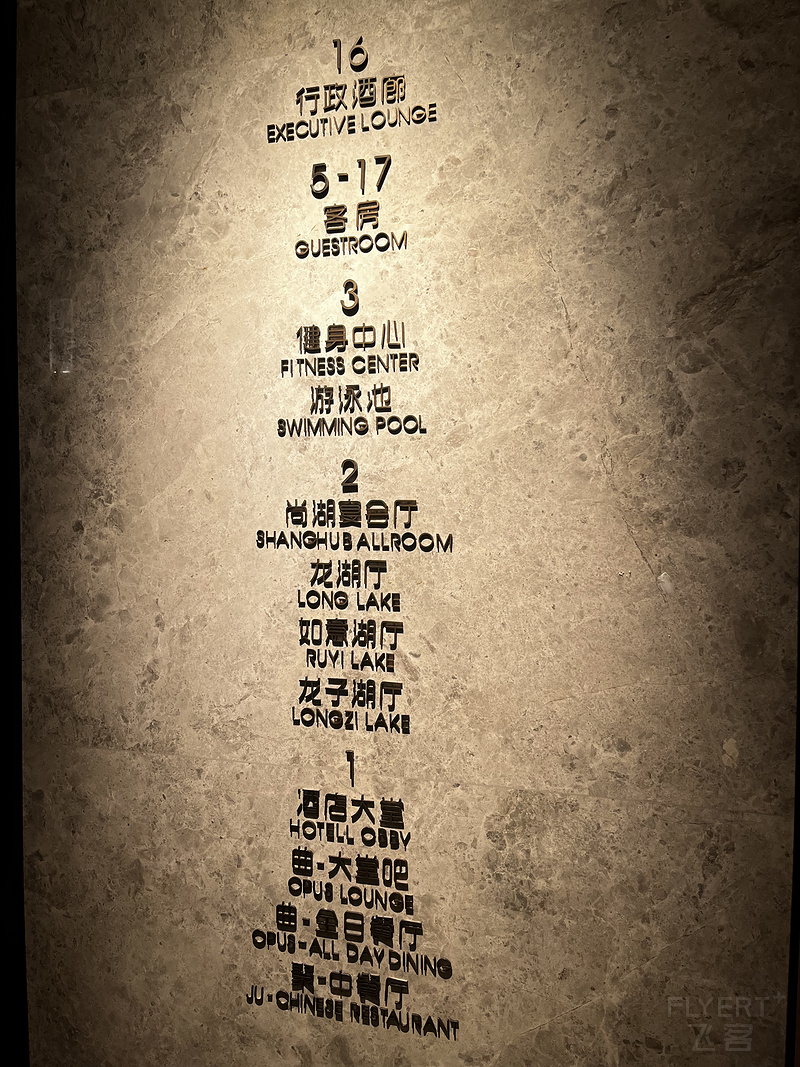 16
行政酒廊
EXECUTIVE LOUNGE
5-17
客房
GUESTROOM
3
健身中心
FITNESS CENTER
游泳池
SWIMMING POOL
2
尚湖宴会厅
SHANGHU BALLROOM
龙湖厅
LONG LAKE
如意湖厅
RUYI LAKE
龙子湖厅
LONGZI LAKE
1
酒店大堂
HOTELL OBBY
曲-大堂吧
OPUS LOUNGE
曲-全日餐厅
OPUS-ALL DAY DINING
-中餐厅
JU-CHINESE RESTAURANT
FLYERT
飞客